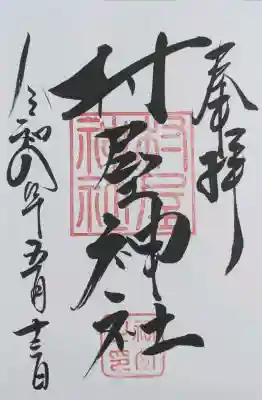 奉拝
村屋神社
令和八年五月十三日